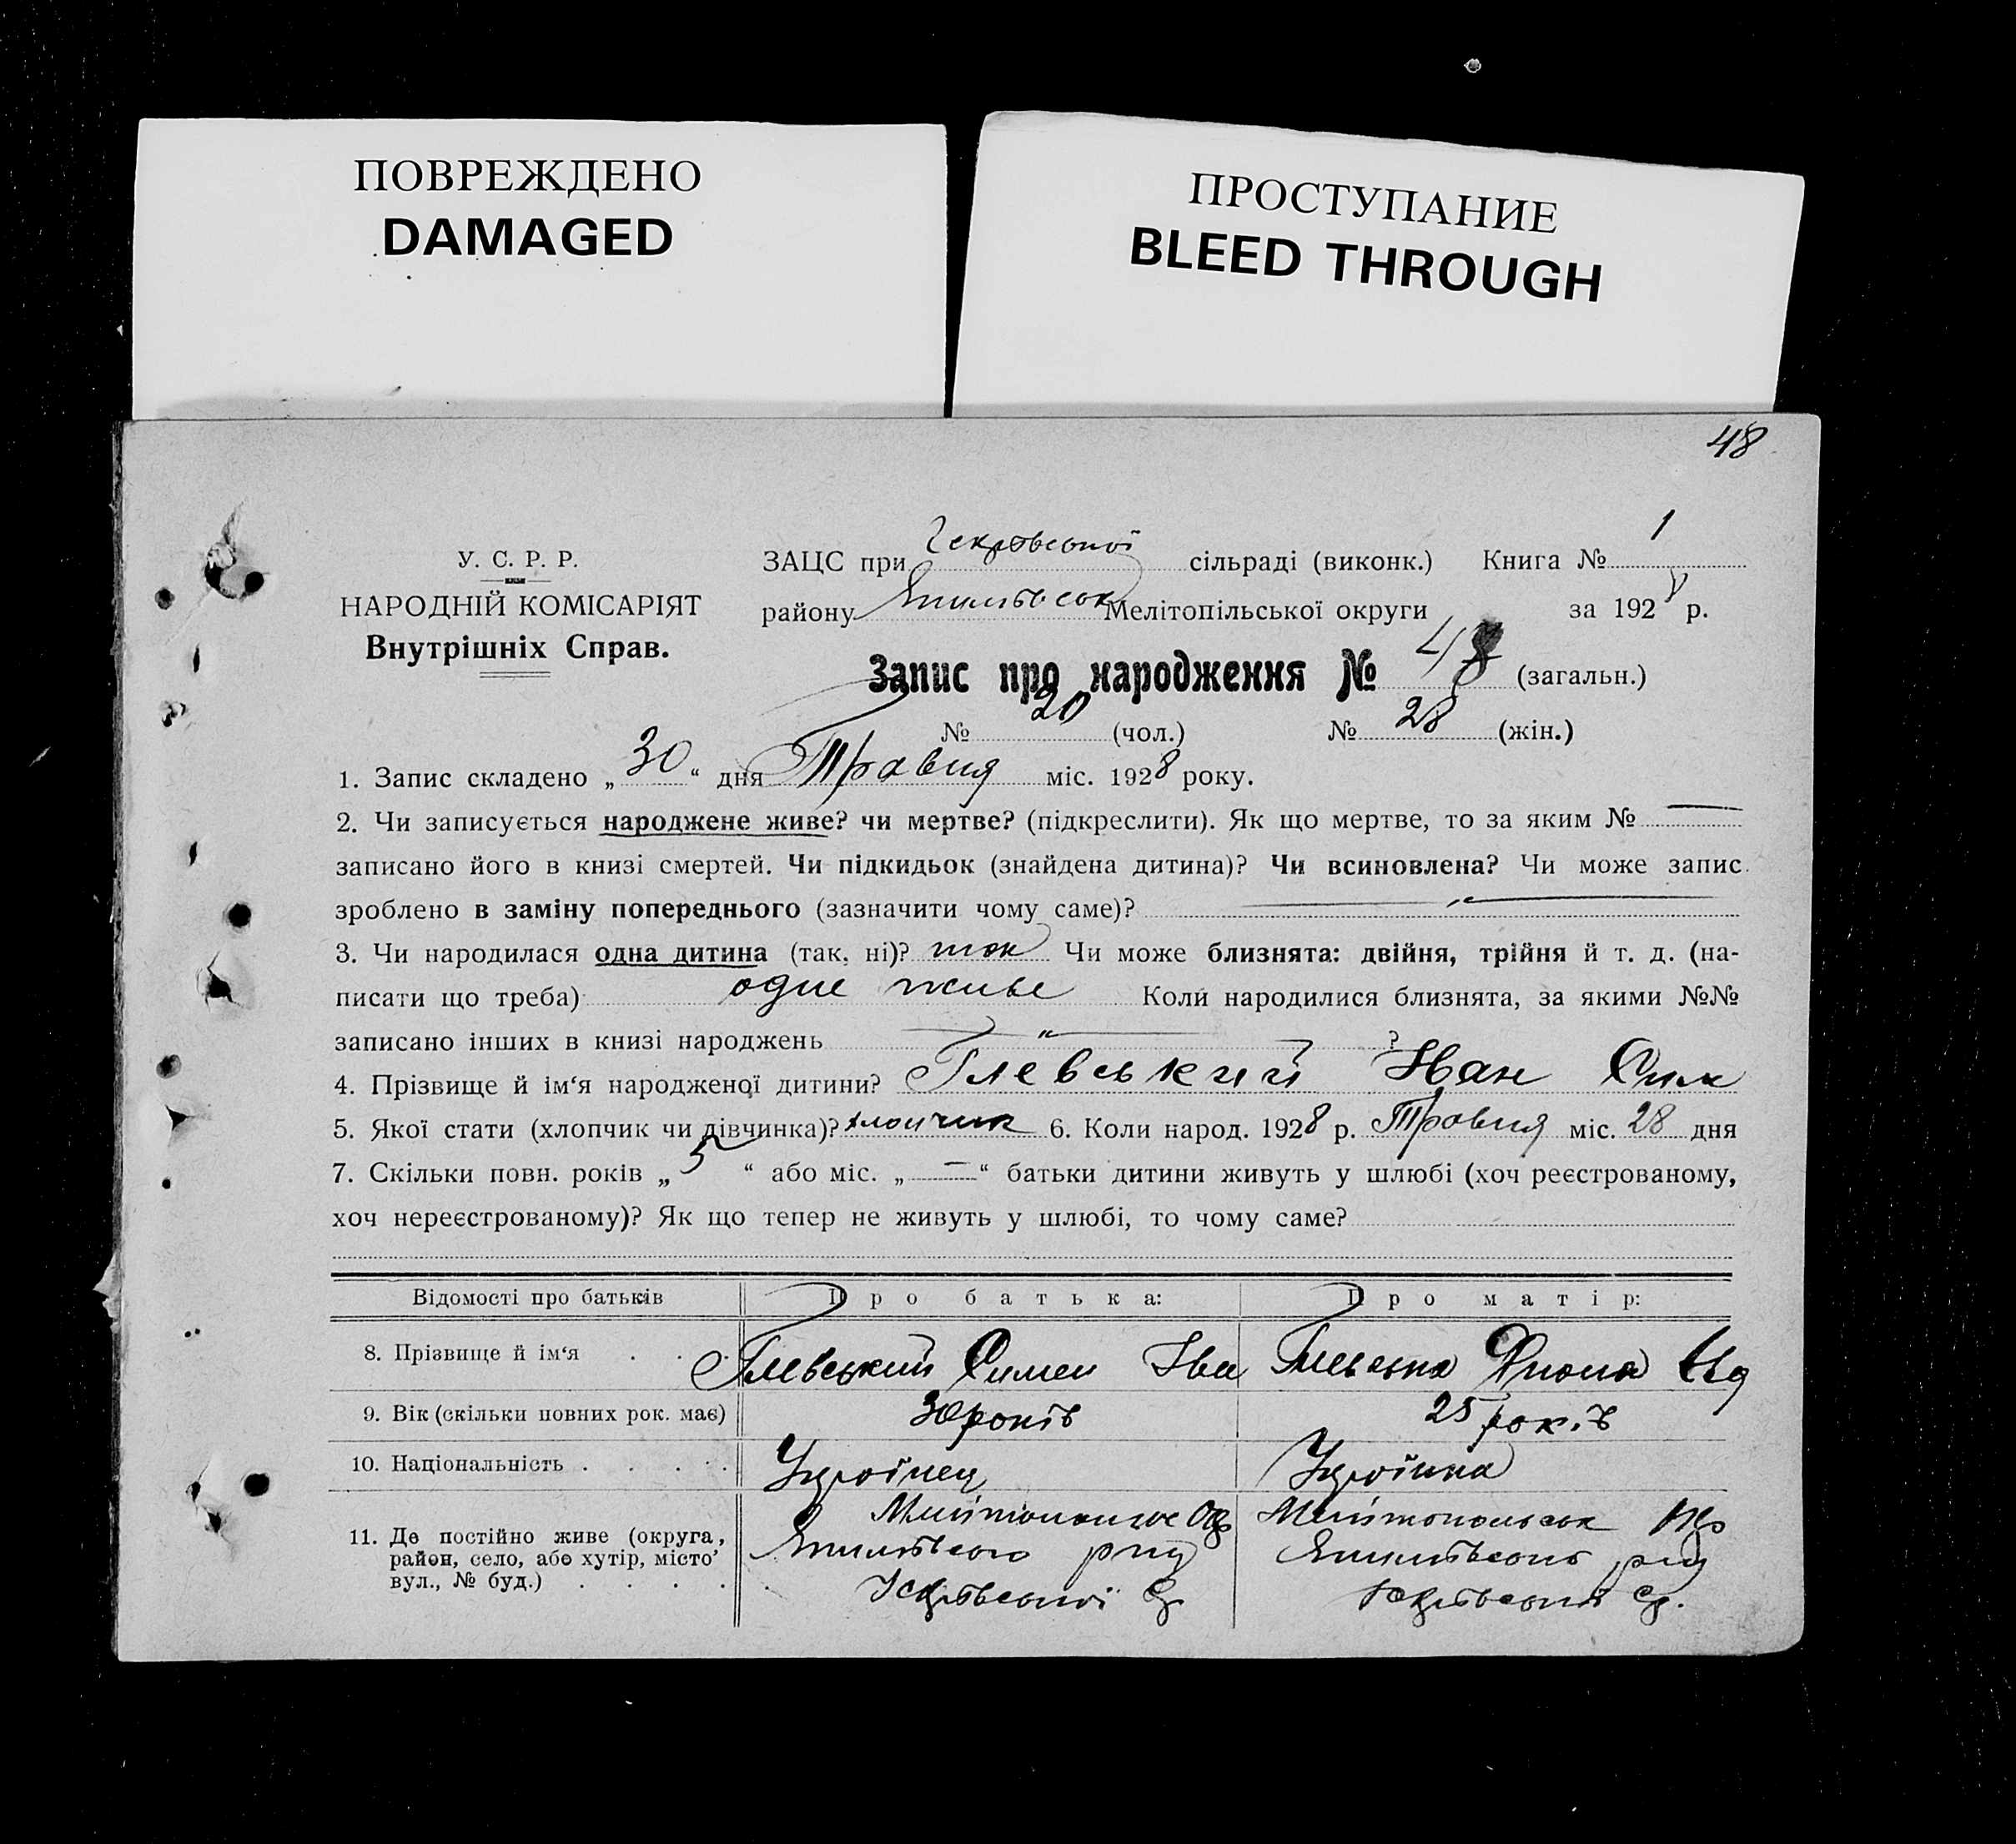 ПОВРЕЖДЕНО
DAMAGED
ПРОСТУПАНИЕ
BLEED THROUGH
48
У. С. Р. Р.
НАРОДНІЙ КОМІСАРІЯТ
Внутрішніх Справ.
ЗАЦС при сільраді (виконк.) Книга № 1
району Мелітопільської округи за 1928 р.
Запис про народження № 48 (загальн.)
№ 20 (чол.) № 28 (жін.)
1. Запис складено „30“ дня Травня міс. 1928 року.
2. Чи записується народжене живе? чи мертве? (підкреслити). Як що мертве, то за яким № —
записано його в книзі смертей. Чи підкидьок (знайдена дитина)? Чи всиновлена? Чи може запис
зроблено в заміну попереднього (зазначити чому саме)? —
3. Чи народилася одна дитина (так, ні)? так Чи може близнята: двійня, трійня й т. д. (на-
писати що треба) одне живе Коли народилися близнята, за якими №№
записано інших в книзі народжень — " — ?
4. Прізвище й ім‘я народженої дитини? Глевський Іван Сим
5. Якої стати (хлопчик чи дівчинка)? хлопчик 6. Коли народ. 1928 р. Травня міс. 28 дня
7. Скільки повн. років „5“ або міс. „—“ батьки дитини живуть у шлюбі (хоч реєстрованому,
хоч нереєстрованому)? Як що тепер не живуть у шлюбі, то чому саме?
Відомості про батьків Про батька: Про матір:
8. Прізвище й ім‘я . . . Глевський Симен Іва Глевська
9. Вік (скільки повних рок. має) 30 років 25 років
10. Національність . . . . . Українец Українка
11. Де постійно живе (округа,
район, село, або хутір, місто’
вул., № буд.) . . . . .